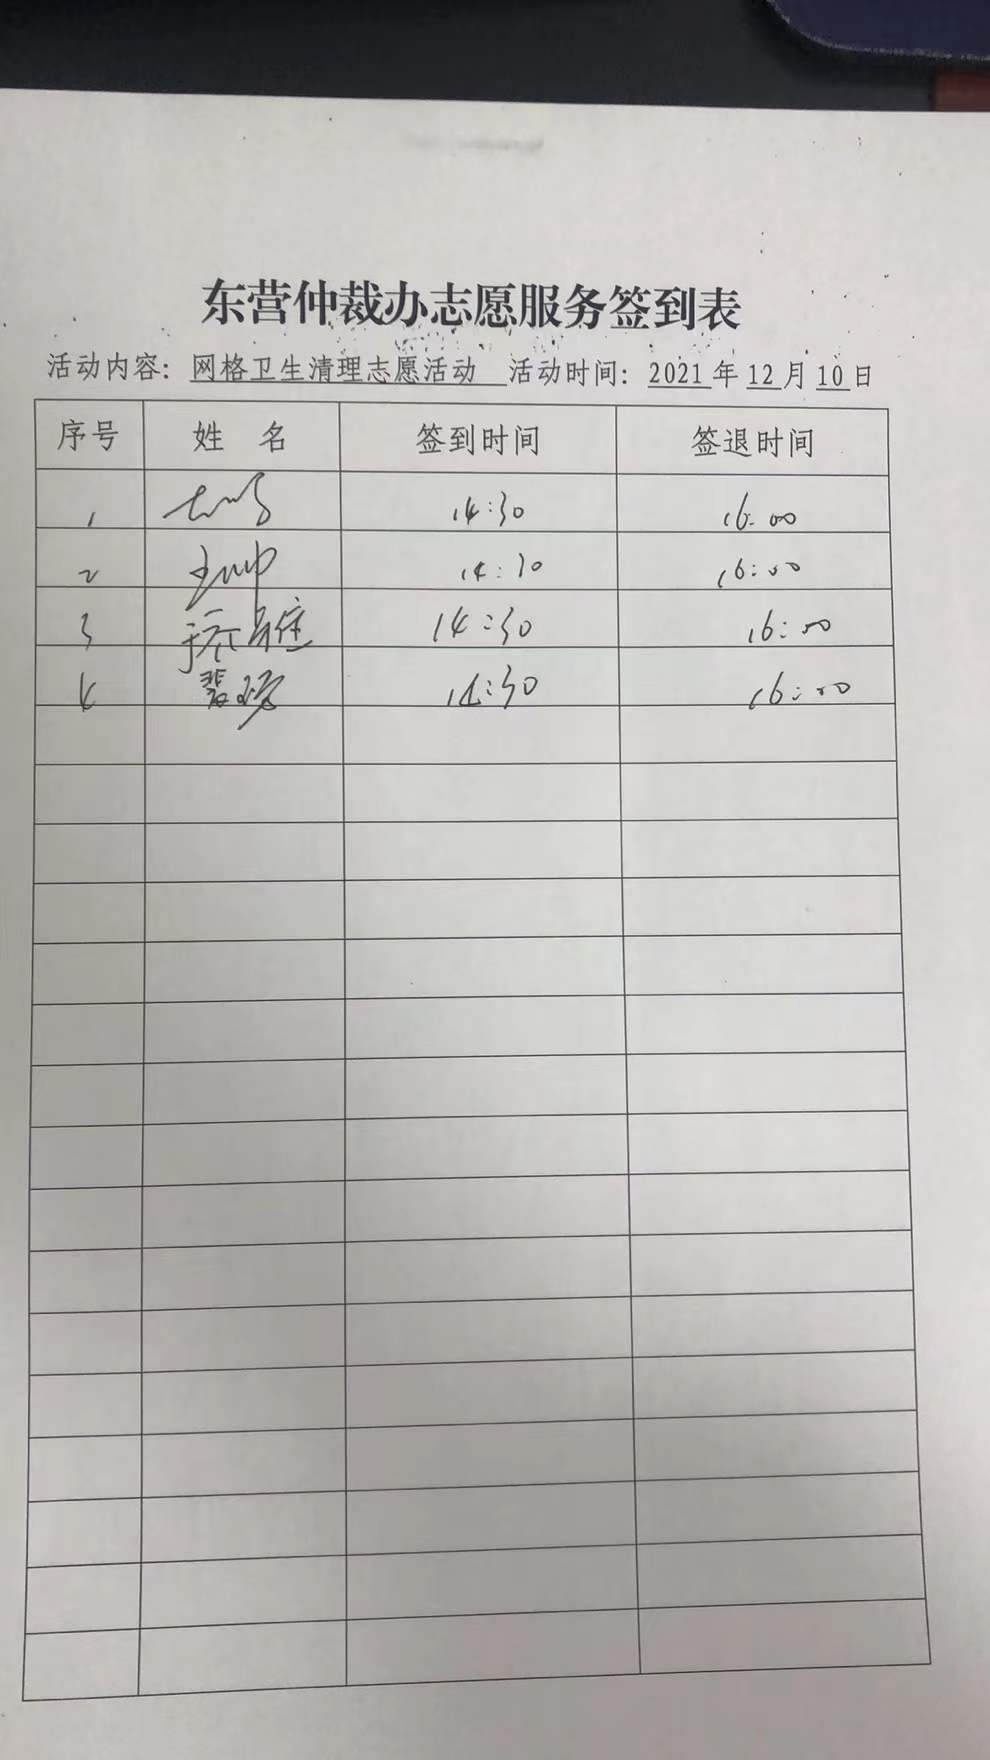 东营仲裁办志愿服务签到表
活动内容：网格卫生清理志愿活动 活动时间：2021年12月10日
序号 姓 名 签到时间 签退时间
1 14:30 16:00
2 14:30 16:00
3 14:30 16:00
4 14:30 16:00